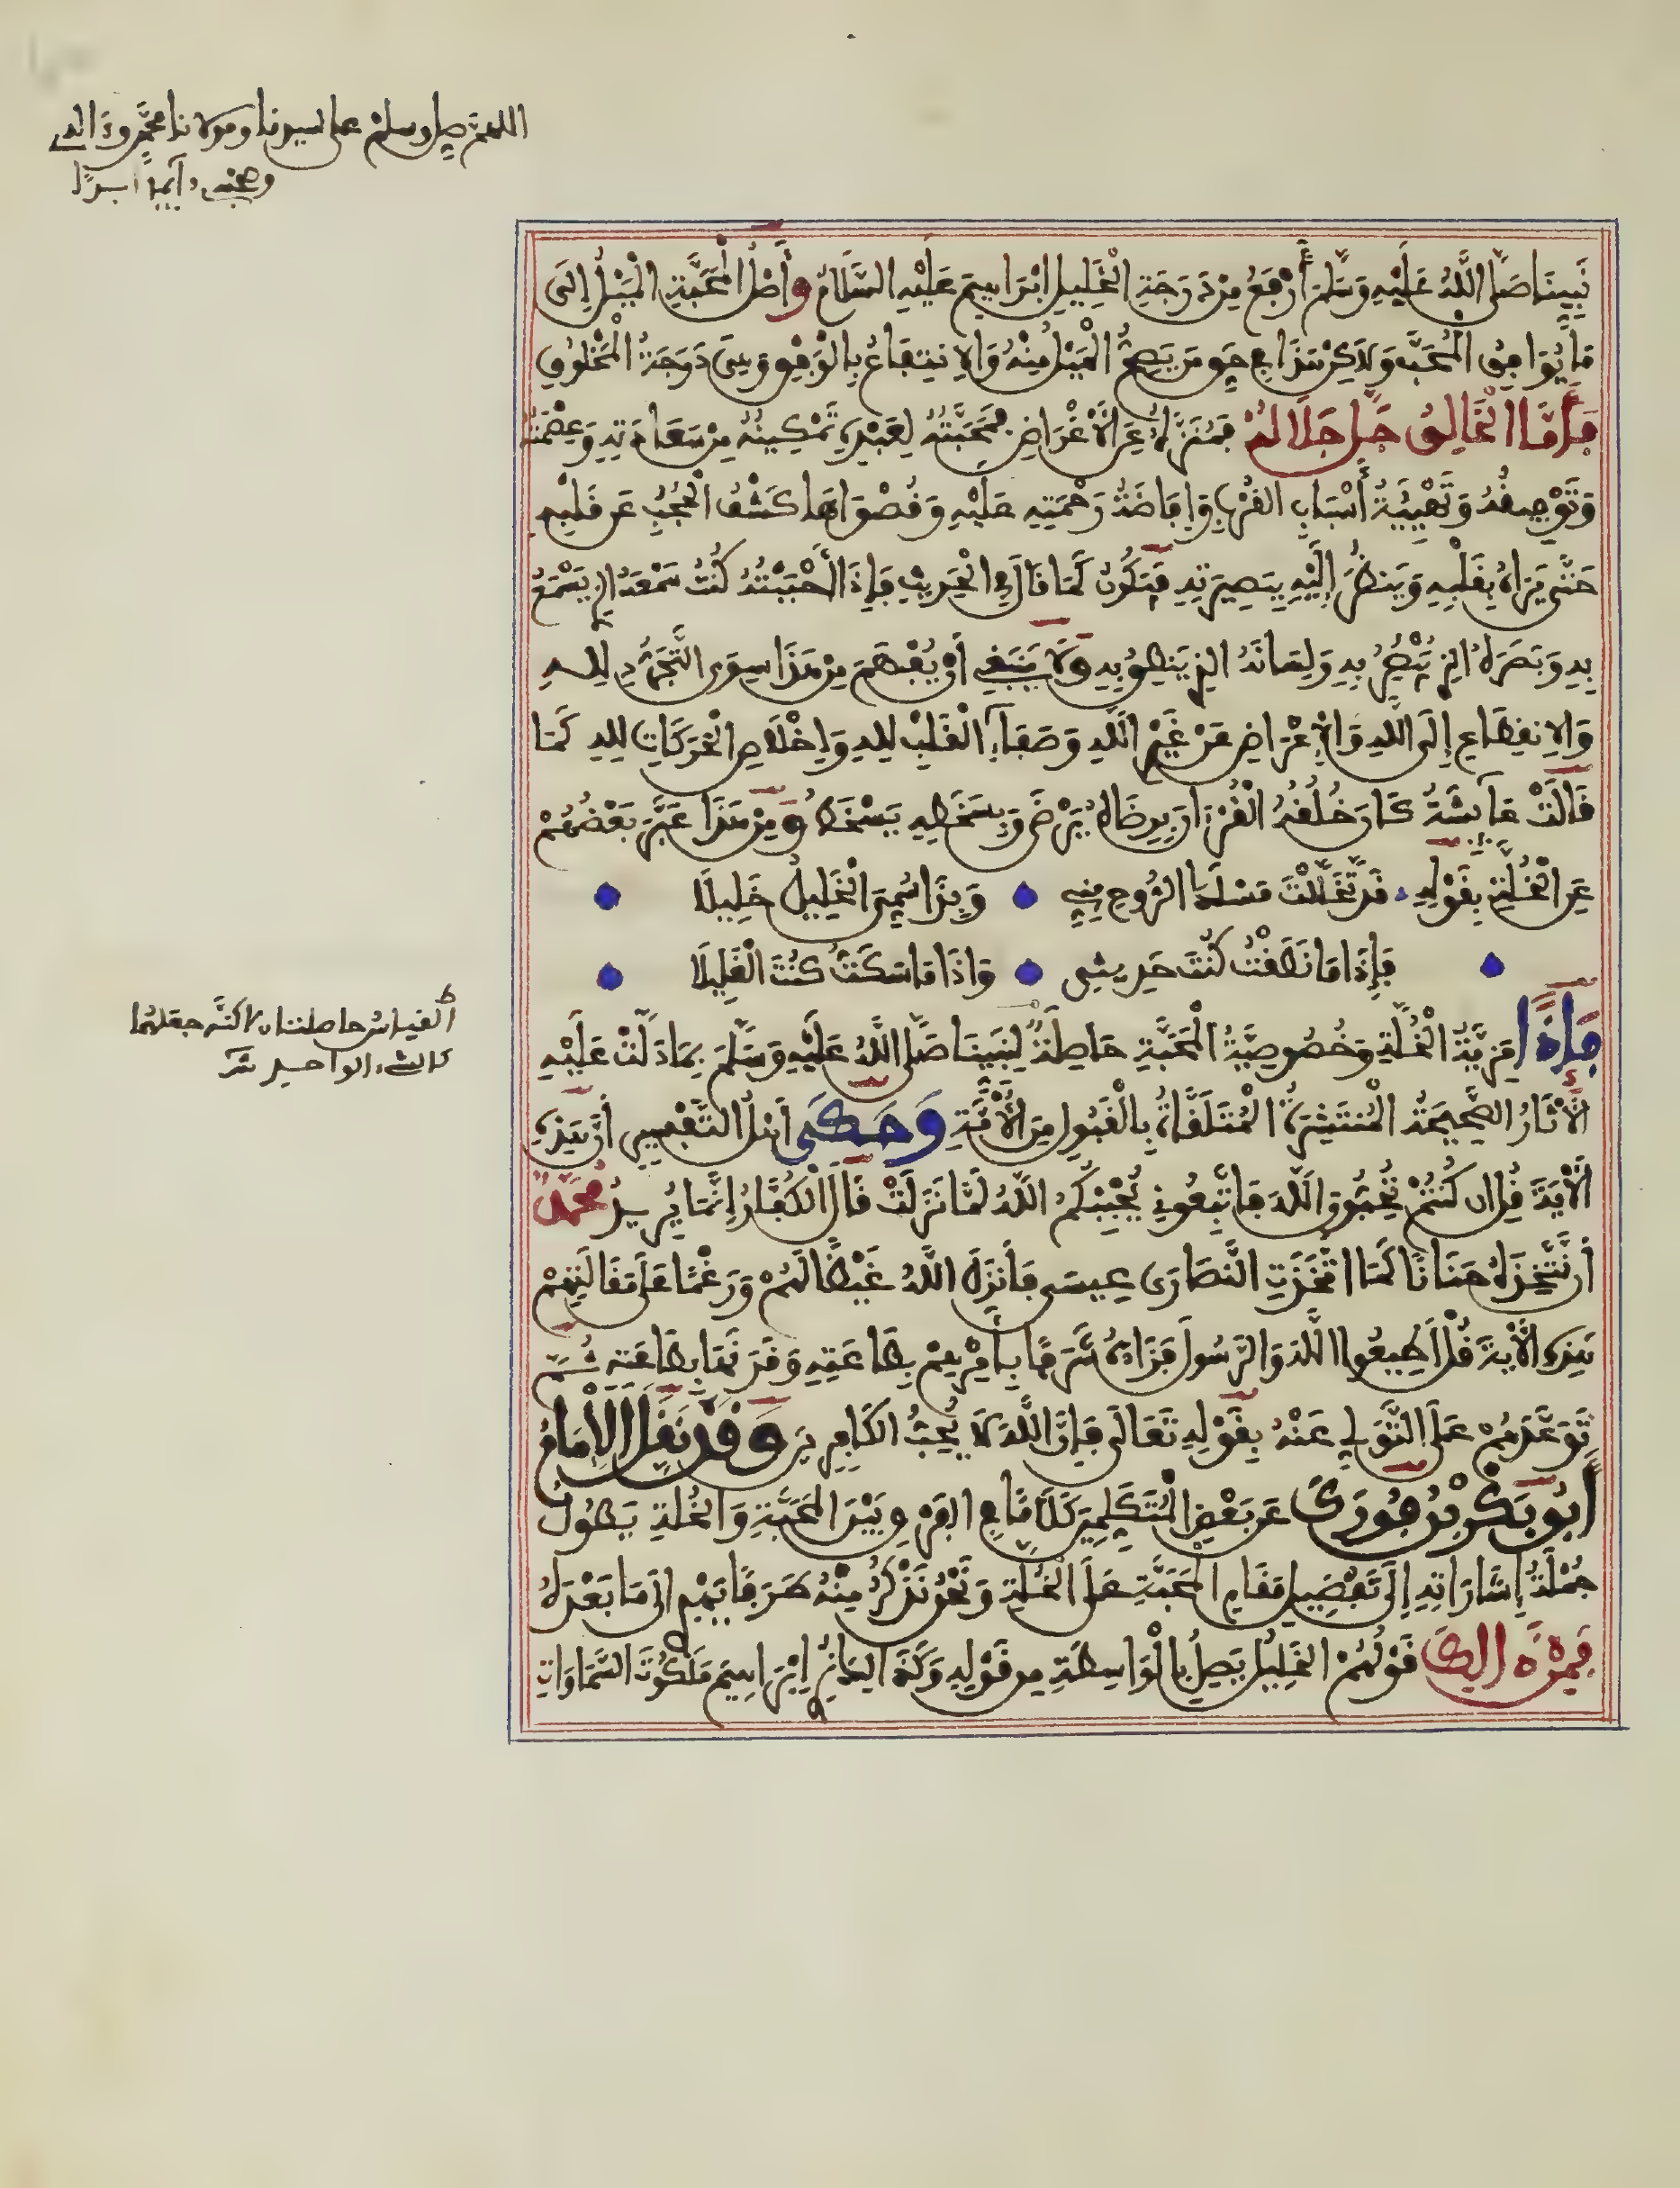 اللهم صل وسلم على سيدنا ومولانا محمد وءاله
وصحبه دايما ابدا
نَبِيِّنَا صَلَّى اللَّهُ عَلَيْهِ وَسَلَّمَ أَرْفَعُ مِنْ دَرَجَةِ الْخَلِيلِ إِبْرَاهِيمَ عَلَيْهِ السَّلَامُ وَأَصْلُ الْمَحَبَّةِ الْمَيْلُ إِلَى
مَا يُوَافِقُ الْمُحِبَّ وَلَكِنْ هَذَا فِي حَقِّ مَنْ يَصِحُّ الْمَيْلُ مِنْهُ وَالِانْتِفَاعُ بِالْوَفْقِ وَهِيَ دَرَجَةُ الْمَخْلُوقِ
فَأَمَّا الْخَالِقُ جَلَّ جَلَالُهُ فَمُنَزَّهٌ عَنِ الْأَغْرَاضِ فَمَحَبَّتُهُ لِعَبْدِهِ تَمْكِينُهُ مِنْ سَعَادَتِهِ وَعِصْمَتُهُ
وَتَوْفِيقُهُ وَتَهْيِئَةُ أَسْبَابِ الْقُرْبِ وَإِفَاضَةُ رَحْمَتِهِ عَلَيْهِ وَقُصْوَاهَا كَشْفُ الْحُجُبِ عَنْ قَلْبِهِ
حَتَّى يَرَاهُ بِقَلْبِهِ وَيَنْظُرَ إِلَيْهِ بِبَصِيرَتِهِ فَيَكُونُ كَمَا قَالَ فِي الْحَدِيثِ فَإِذَا أَحْبَبْتُهُ كُنْتُ سَمْعَهُ الذِي يَسْمَعُ
بِهِ وَبَصَرَهُ الذِي يُبْصِرُ بِهِ وَلِسَانَهُ الذِي يَنْطِقُ بِهِ وَلَا يَنْبَغِي أَنْ يُفْهَمَ مِنْ هَذَا سِوَى التَّجَرُّدِ لِلهِ
وَالِانْقِطَاعِ إِلَى اللَّهِ وَالْإِعْرَاضِ عَنْ غَيْرِ اللَّهِ وَصَفَاءِ الْقَلْبِ لِلهِ وَإِخْلَاصِ الْحَرَكَاتِ لِلهِ كَمَا
قَالَتْ عَائِشَةُ كَانَ خُلُقُهُ الْقُرْآنَ بِرِضَاهُ يَرْضَى وَبِسَخَطِهِ يَسْخَطُ وَمِنْ هَذَا عَبَّرَ بَعْضُهُمْ
عَنِ الْخُلَّةِ بِقَوْلِهِ قَدْ تَخَلَّلْتَ مَسْلَكَ الرُّوحِ مِنِّي وَبِذَا سُمِّيَ الْخَلِيلُ خَلِيلَا
فَإِذَا مَا نَطَقْتُ كُنْتَ حَدِيثِي وَإِذَا مَا سَكَتُّ كُنْتَ الْغَلِيلَا
فَإِذًا مَزِيَّةُ الْخُلَّةِ وَخُصُوصِيَّةُ الْمَحَبَّةِ حَاصِلَةٌ لِنَبِيِّنَا صَلَّى اللَّهُ عَلَيْهِ وَسَلَّمَ بِمَا دَلَّتْ عَلَيْهِ
القياس حاصلتان لاكنه جعلهما
كالشيء الواحد
الْآثَارُ الصَّحِيحَةُ الْمُنْتَشِرَةُ الْمُتَلَقَّاةُ بِالْقَبُولِ مِنَ الْأُمَّةِ وَحَكَى أَهْلُ التَّفْسِيرِ أَنَّ هَذِهِ
الْآيَةَ قُلْ إِنْ كُنْتُمْ تُحِبُّونَ اللَّهَ فَاتَّبِعُونِي يُحْبِبْكُمُ اللَّهُ لَمَّا نَزَلَتْ قَالَ الْكُفَّارُ إِنَّمَا يُرِيدُ مُحَمَّدٌ
أَنْ نَتَّخِذَهُ حَنَانًا كَمَا اتَّخَذَتِ النَّصَارَى عِيسَى فَأَنْزَلَ اللَّهُ غَيْظًا لَهُمْ وَرَغْمًا عَلَى مَقَالَتِهِمْ
هَذِهِ الْآيَةَ قُلْ أَطِيعُوا اللَّهَ وَالرَّسُولَ فَزَادَهُ شَرَفًا بِأَمْرِهِمْ بِطَاعَتِهِ وَقَرَنَهَا بِطَاعَتِهِ ثُمَّ
تَوَعَّدَهُمْ عَلَى التَّوَلِّي عَنْهُ بِقَوْلِهِ تَعَالَى فَإِنَّ اللَّهَ لَا يُحِبُّ الْكَافِرِينَ وَقَدْ نَقَلَ الْإِمَامُ
أَبُو بَكْرِ بْنُ فُورَكَ عَنْ بَعْضِ الْمُتَكَلِّمِينَ كَلَامًا فِي الْفَرْقِ بَيْنَ الْمَحَبَّةِ وَالْخُلَّةِ يَطُولُ
جُمْلَةُ إِشَارَاتِهِ إِلَى تَفْضِيلِ مَقَامِ الْمَحَبَّةِ عَلَى الْخُلَّةِ وَنَحْنُ نَذْكُرُ مِنْهُ طَرَفًا يَهْدِي إِلَى مَا بَعْدَهُ
فَمِنْ ذَلِكَ قَوْلُهُمُ الْخَلِيلُ يَصِلُ بِالْوَاسِطَةِ مِنْ قَوْلِهِ وَكَذَلِكَ نُرِي إِبْرَاهِيمَ مَلَكُوتَ السَّمَاوَاتِ